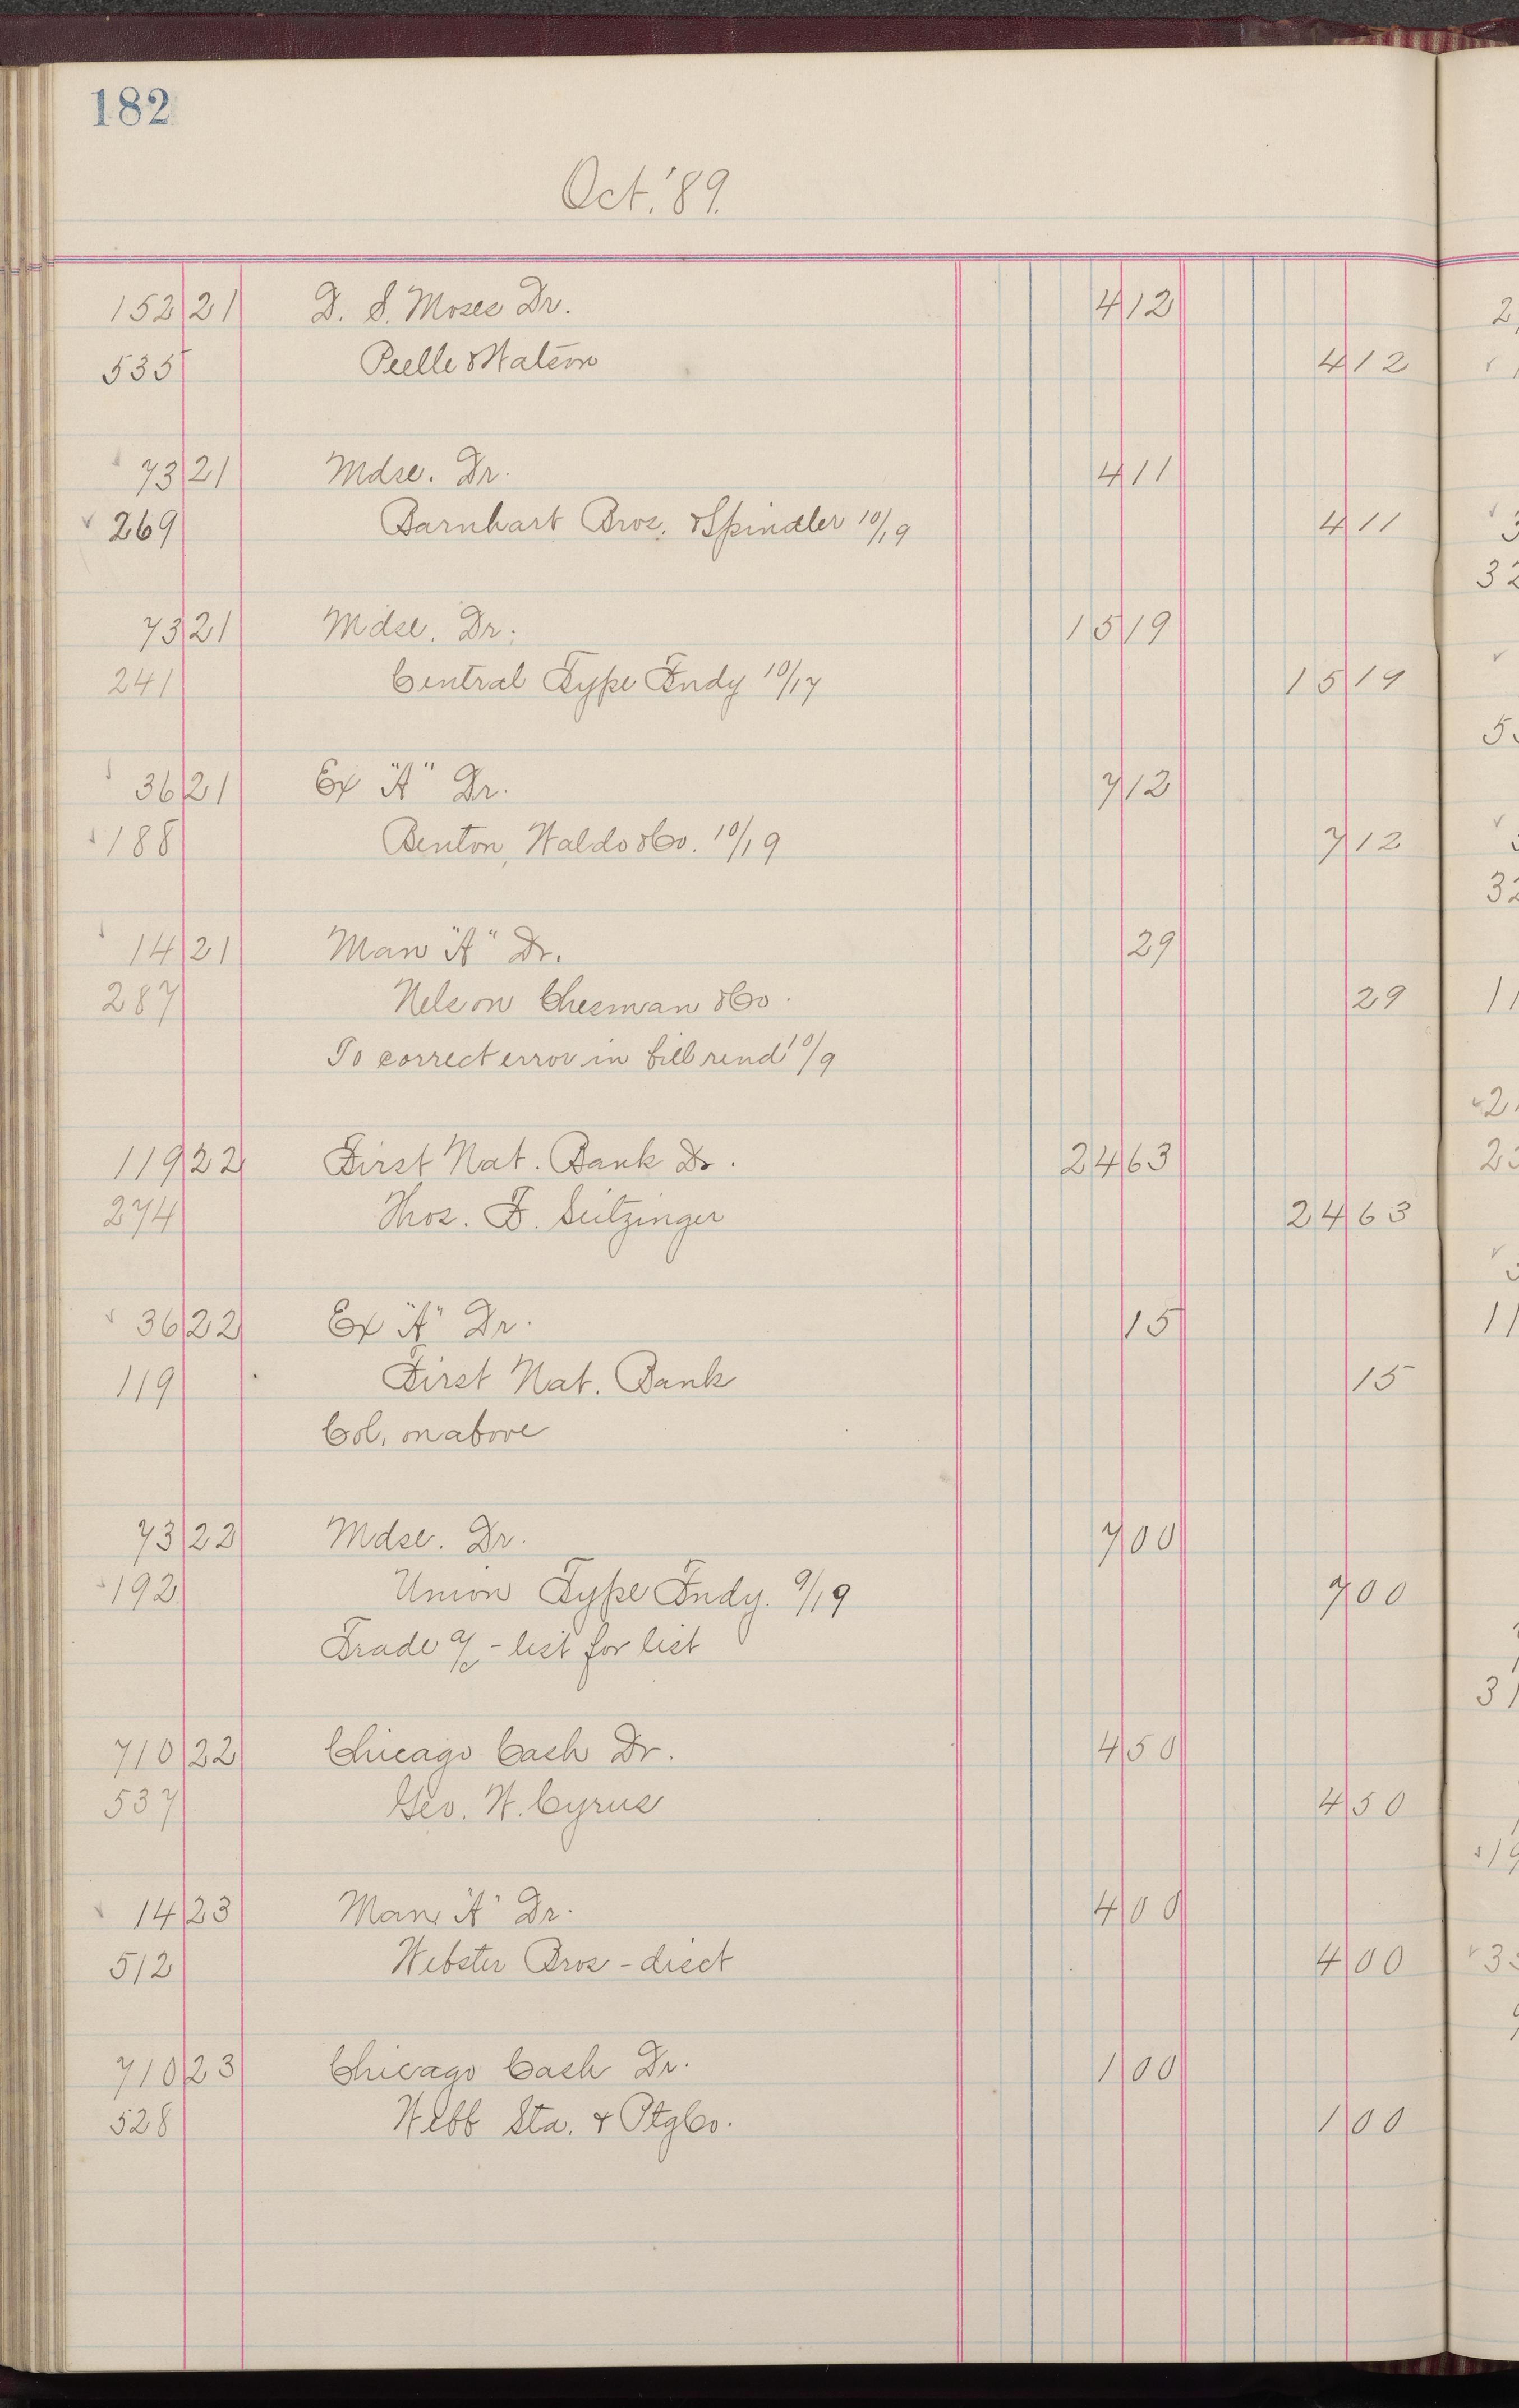 182
Oct. '89.
152 21 D. S. Moses Dr. 4 12
535 Peelle & Watson 4 12
73 21 Mdse. Dr. 4 11
269 Barnhart Bros. & Spindler 10/19 4 11
73 21 Mdse. Dr. 15 19
241 Central Type Fndy 10/17 15 19
36 21 Ex "A" Dr. 7 12
188 Benton, Waldo & Co. 10/19 7 12
14 21 Man "A" Dr. 29
287 Nelson Chesman & Co. 29
To correct error in bill rend 10/9
119 22 First Nat. Bank Dr. 24 63
274 Thos. F. Seitzinger 24 63
36 22 Ex "A" Dr. 15
119 First Nat. Bank 15
Col. on above
73 22 Mdse. Dr. 7 00
192 Union Type Fndy. 9/19 7 00
Trade a/c - list for list
710 22 Chicago Cash Dr. 4 50
537 Geo. W. Cyrus 4 50
14 23 Man "A" Dr. 4 00
512 Webster Bros - disct 4 00
710 23 Chicago Cash Dr. 1 00
528 Webb Sta. & Ptg Co. 1 00